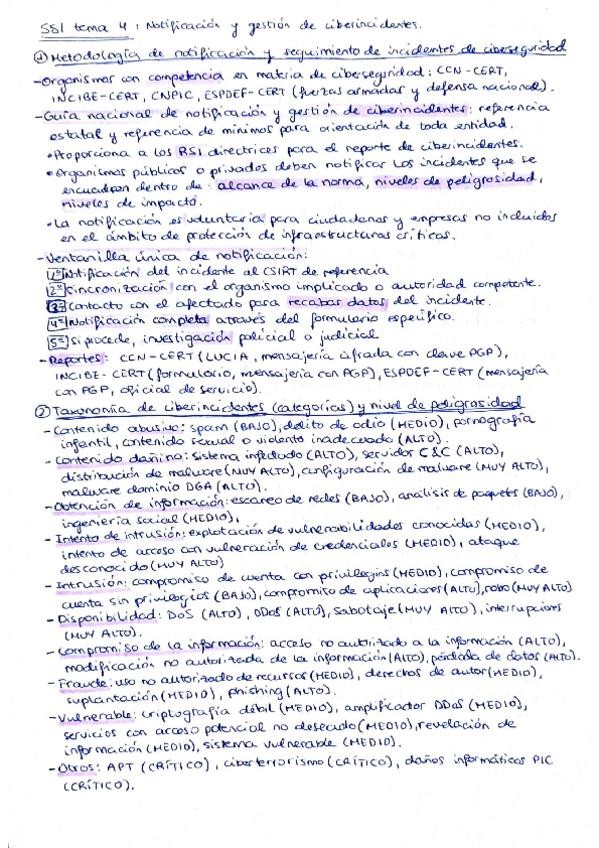 SSI tema 4: Notificación y gestión de ciberincidentes.
① Metodología de notificación y seguimiento de incidentes de ciberseguridad
- Organismos con competencia en materia de ciberseguridad: CCN-CERT,
INCIBE-CERT, CNPIC, ESPDEF-CERT (fuerzas armadas y defensa nacional).
- Guía nacional de notificación y gestión de ciberincidentes: referencia
estatal y referencia de mínimos para orientación de toda entidad.
• Proporciona a los RSI directrices para el reporte de ciberincidentes.
• Organismos públicos o privados deben notificar los incidentes que se
encuadren dentro de: alcance de la norma, niveles de peligrosidad,
niveles de impacto.
• La notificación es voluntaria para ciudadanos y empresas no incluidos
en el ámbito de protección de infraestructuras críticas.
- Ventanilla única de notificación:
1º Notificación del incidente al CSIRT de referencia
2º Sincronización con el organismo implicado o autoridad competente.
3º Contacto con el afectado para recabar datos del incidente.
4º Notificación completa através del formulario específico.
5º Si procede, investigación policial o judicial
- Reportes: CCN-CERT (LUCIA, mensajería cifrada con clave PGP),
INCIBE-CERT (formulario, mensajería con PGP), ESPDEF-CERT (mensajería
con PGP, oficial de servicio).
② Taxonomía de ciberincidentes (categorías) y nivel de peligrosidad
- Contenido abusivo: spam (BAJO), delito de odio (MEDIO), pornografía
infantil, contenido sexual o violento inadecuado (ALTO).
- Contenido dañino: sistema infectado (ALTO), servidor C&C (ALTO),
distribución de malware (MUY ALTO), configuración de malware (MUY ALTO),
malware dominio DGA (ALTO).
- Obtención de información: escaneo de redes (BAJO), análisis de paquetes (BAJO),
ingeniería social (MEDIO),
- Intento de intrusión: explotación de vulnerabilidades conocidas (MEDIO),
intento de acceso con vulneración de credenciales (MEDIO), ataque
desconocido (MUY ALTO)
- Intrusión: compromiso de cuenta con privilegios (MEDIO), compromiso de
cuenta sin privilegios (BAJO), compromiso de aplicaciones (ALTO), robo (MUY ALTO)
- Disponibilidad: DoS (ALTO), DDoS (ALTO), sabotaje (MUY ALTO), interrupciones
(MUY ALTO).
- Compromiso de la información: acceso no autorizado a la información (ALTO),
modificación no autorizada de la información (ALTO), pérdida de datos (ALTO).
- Fraude: uso no autorizado de recursos (MEDIO), derechos de autor (MEDIO),
suplantación (MEDIO), phishing (ALTO).
- Vulnerable: criptografía débil (MEDIO), amplificador DDoS (MEDIO),
servicios con acceso potencial no deseado (MEDIO), revelación de
información (MEDIO), sistema vulnerable (MEDIO).
- Otros: APT (CRÍTICO), ciberterrorismo (CRÍTICO), daños informáticos PIC
(CRÍTICO).